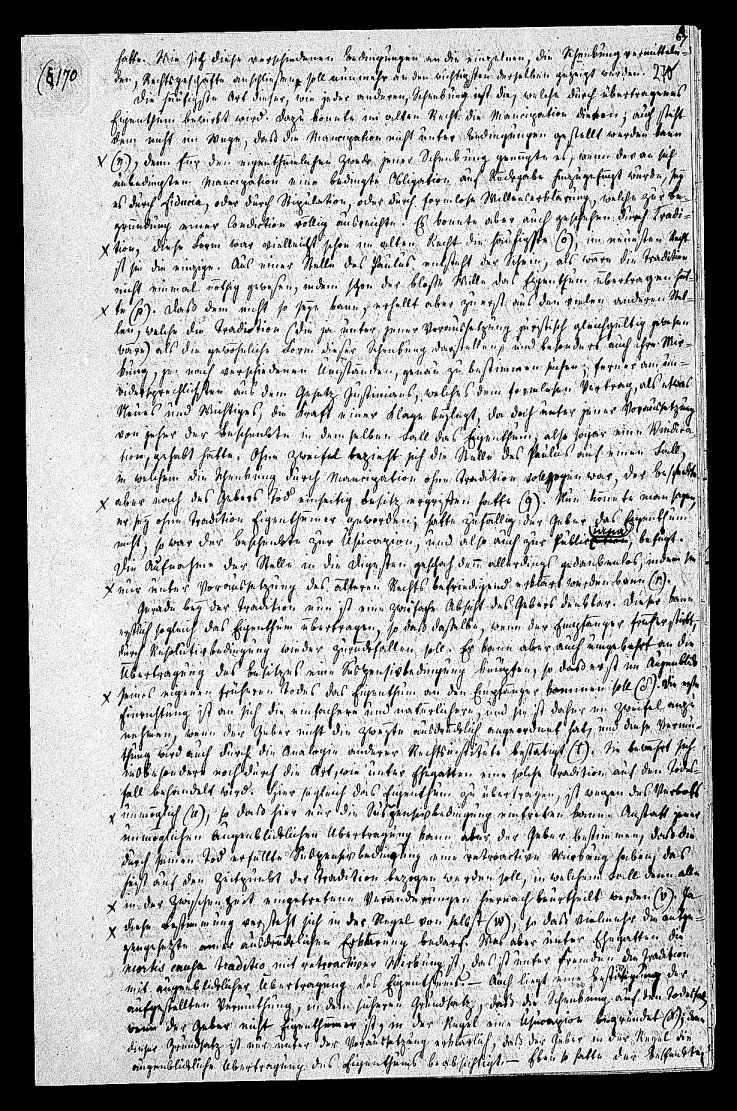 (§ 170
hatte. Wie sich diese verschiedenen Bedingungen an die einzelnen, die Schenkung vermitteln-
den, Rechtsgeschäfte anschließen, soll nunmehr an den wichtigsten derselben gezeigt werden.
Die häufigste Art dieser, wie jeder anderen, Schenkung ist die, welche durch übertragenes
Eigenthum bewirkt wird. Dazu konnte im alten Recht die Mancipation dienen; auch steht
dem nicht im Wege, daß die Mancipation nicht unter Bedingungen gestellt werden kann
x (n), denn für den eigenthümlichen Zweck jener Schenkung genügte es, wenn der an sich
unbedingten Mancipation eine bedingte Obligation auf Rückgabe hinzugefügt wurde, sey
es durch Fiducia, oder durch Stipulation, oder durch formlose Willenserklärung, welche zur Be-
gründung einer Condiction völlig ausreichte. Es konnte aber auch geschehen durch Tradi-
x tion, diese Form war vielleicht schon im alten Recht die häufigste (o), im neuesten Recht
ist sie die einzige. Aus einer Stelle des Paulus entsteht der Schein, als wäre die Tradition
nicht einmal nöthig gewesen, indem schon der bloße Wille das Eigenthum übertragen hät-
x te (p). Daß dem nicht so seyn kann, erhellt aber zuerst aus den vielen anderen Stel-
len, welche die Tradition (die ja unter jener Voraussetzung juristisch gleichgültig gewesen
wäre) als die gewöhnliche Form dieser Schenkung darstellen, und besonders auch ihre Wir-
kung, je nach verschiedenen Umständen, genau zu bestimmen suchen; ferner am un-
widersprechlichsten aus dem Gesetz Justinians, welches dem formlosen Vertrag, als etwas
Neues und Wichtiges, die Kraft einer Klage beylegt, da doch unter jener Voraussetzung
von jeher der Beschenkte in demselben Fall das Eigenthum, also sogar eine Vindica-
tion, gehabt hätte. Ohne Zweifel bezieht sich die Stelle des Paulus auf einen Fall,
in welchem die Schenkung durch Mancipation ohne Tradition vollzogen war, der Beschenkte
x aber nach des Gebers Tod einseitig Besitz ergriffen hatte (q). Nun konnte man sagen,
er sey ohne Tradition Eigenthümer geworden; hatte zufällig der Geber das Eigenthum
nicht, so war der Beschenkte zur Usucapion, und also auch zur Publiciana, befugt.
Die Aufnahme der Stelle in die Digesten geschah dann allerdings gedankenlos, indem sie
x nur unter Voraussetzung des älteren Rechts befriedigend erklärt werden kann (r).
Gerade bey der Tradition nun ist eine zwiefache Absicht des Gebers denkbar. Dieser kann
erstlich sogleich das Eigenthum übertragen, so daß dasselbe, wenn der Empfänger früher stirbt,
durch Resolutivbedingung wieder zurückfallen soll. Er kann aber auch umgekehrt an die
Übertragung des Besitzes eine Suspensivbedingung knüpfen, so daß erst im Augenblick
x seines eigenen früheren Todes das Eigenthum an den Empfänger kommen soll (s). Die erste
Einrichtung ist an sich die einfachere und natürlichere, und sie ist daher im Zweifel anzu-
nehmen, wenn der Geber nicht die zweyte ausdrücklich angeordnet hat, und diese Vermu-
thung wird auch durch die Analogie anderer Rechtsinstitute bestätigt (t). Sie bewährt sich
insbesondere noch durch die Art, wie unter Ehegatten eine solche Tradition auf den Todes-
fall behandelt wird. Hier sogleich das Eigenthum zu übertragen, ist wegen des Verbots
x unmöglich (u), so daß hier nur die Suspensivbedingung eintreten kann. Anstatt jener
unmöglichen augenblicklichen Übertragung kann aber der Geber bestimmen, daß die
durch seinen Tod erfüllte Suspensivbedingung eine retroactive Wirkung haben, das
heißt auf den Zeitpunkt der Tradition bezogen werden soll, in welchem Fall denn alle
x in der Zwischenzeit eingetretene Veränderungen hiernach beurtheilt werden (v). Ja
x diese Bestimmung versteht sich in der Regel von selbst (w), so daß vielmehr die entge-
gengesetzte einer ausdrücklichen Erklärung bedarf. Was aber unter Ehegatten die
mortis causa traditio mit retroactiver Wirkung ist, das ist unter Fremden die Tradition
mit augenblicklicher Übertragung des Eigenthums. — Auch liegt eine Bestätigung der
aufgestellten Vermuthung, in dem sicheren Grundsatz, daß die Schenkung auf den Todesfall,
wenn der Geber nicht Eigenthümer ist, in der Regel eine Usucapion begründet (x); denn
dieser Grundsatz ist nur unter der Voraussetzung erklärlich, daß der Geber in der Regel die
augenblickliche Übertragung des Eigenthums beabsichtigt. — Eben so hatte der Beschenkte